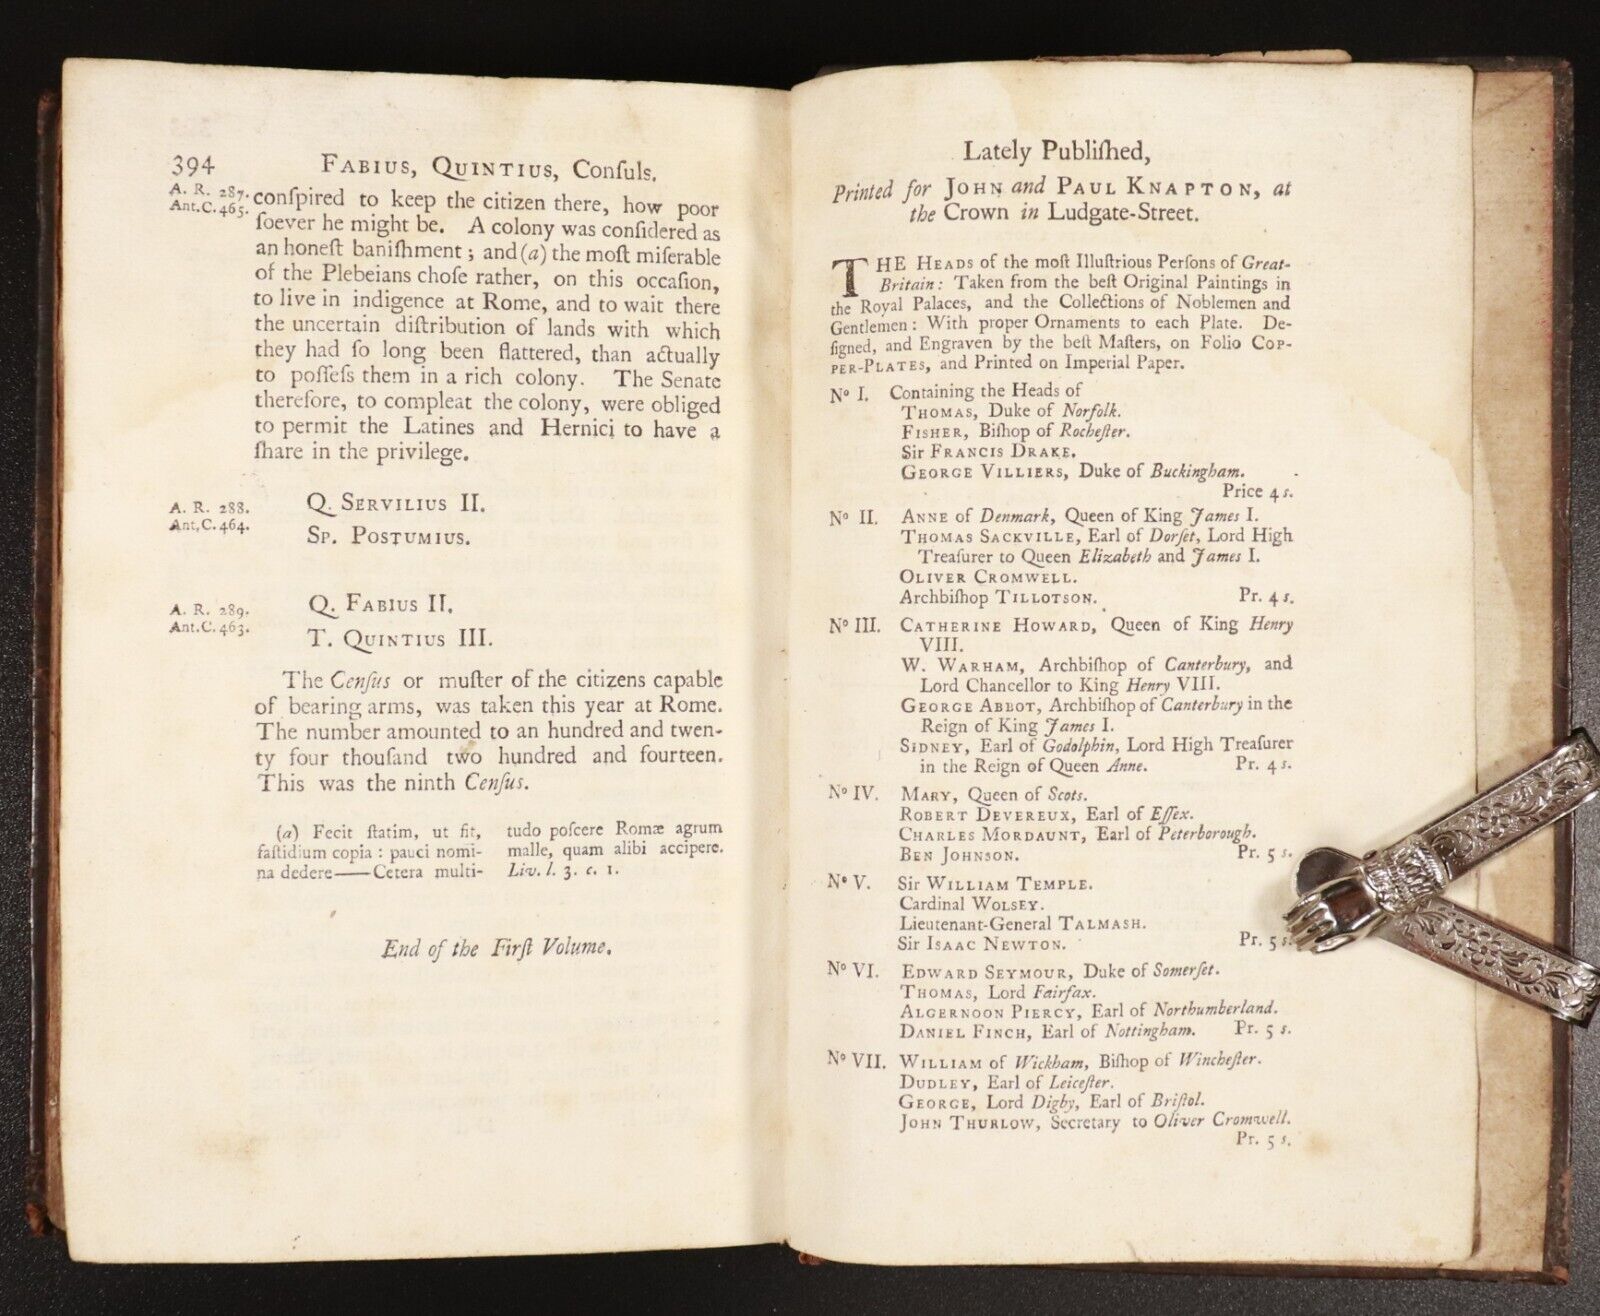 394 FABIUS, QUINTIUS, Conſuls.
A. R. 287. conſpired to keep the citizen there, how poor
Ant.C. 465. ſoever he might be. A colony was conſidered as
an honeſt baniſhment; and (a) the moſt miſerable
of the Plebeians choſe rather, on this occaſion,
to live in indigence at Rome, and to wait there
the uncertain diſtribution of lands with which
they had ſo long been flattered, than actually
to poſſeſs them in a rich colony. The Senate
therefore, to compleat the colony, were obliged
to permit the Latines and Hernici to have a
ſhare in the privilege.
A. R. 288. Q. SERVILIUS II.
Ant.C. 464. SP. POSTUMIUS.
A. R. 289. Q. FABIUS II.
Ant.C. 463. T. QUINTIUS III.
The Cenſus or muſter of the citizens capable
of bearing arms, was taken this year at Rome.
The number amounted to an hundred and twen-
ty four thouſand two hundred and fourteen.
This was the ninth Cenſus.
(a) Fecit ſtatim, ut fit,
faſtidium copia : pauci nomi-
na dedere——Cetera multi-
tudo poſcere Romæ agrum
malle, quam alibi accipere.
Liv. l. 3. c. 1.
End of the Firſt Volume.
Lately Publiſhed,
Printed for JOHN and PAUL KNAPTON, at
the Crown in Ludgate-Street.
THE HEADS of the moſt Illuſtrious Perſons of Great-
Britain: Taken from the beſt Original Paintings in
the Royal Palaces, and the Collections of Noblemen and
Gentlemen: With proper Ornaments to each Plate. De-
ſigned, and Engraven by the beſt Maſters, on Folio COP-
PER-PLATES, and Printed on Imperial Paper.
Nº I. Containing the Heads of
THOMAS, Duke of Norfolk.
FISHER, Biſhop of Rocheſter.
Sir FRANCIS DRAKE.
GEORGE VILLIERS, Duke of Buckingham.
Price 4 s.
Nº II. ANNE of Denmark, Queen of King James I.
THOMAS SACKVILLE, Earl of Dorſet, Lord High
Treaſurer to Queen Elizabeth and James I.
OLIVER CROMWELL.
Archbiſhop TILLOTSON. Pr. 4 s.
Nº III. CATHERINE HOWARD, Queen of King Henry
VIII.
W. WARHAM, Archbiſhop of Canterbury, and
Lord Chancellor to King Henry VIII.
GEORGE ABBOT, Archbiſhop of Canterbury in the
Reign of King James I.
SIDNEY, Earl of Godolphin, Lord High Treaſurer
in the Reign of Queen Anne. Pr. 4 s.
Nº IV. MARY, Queen of Scots.
ROBERT DEVEREUX, Earl of Eſſex.
CHARLES MORDAUNT, Earl of Peterborough.
BEN JOHNSON. Pr. 5 s.
Nº V. Sir WILLIAM TEMPLE.
Cardinal WOLSEY.
Lieutenant-General TALMASH.
Sir ISAAC NEWTON. Pr. 5 s.
Nº VI. EDWARD SEYMOUR, Duke of Somerſet.
THOMAS, Lord Fairfax.
ALGERNOON PIERCY, Earl of Northumberland.
DANIEL FINCH, Earl of Nottingham. Pr. 5 s.
Nº VII. WILLIAM of Wickham, Biſhop of Wincheſter.
DUDLEY, Earl of Leiceſter.
GEORGE, Lord Digby, Earl of Briſtol.
JOHN THURLOW, Secretary to Oliver Cromwell.
Pr. 5 s.